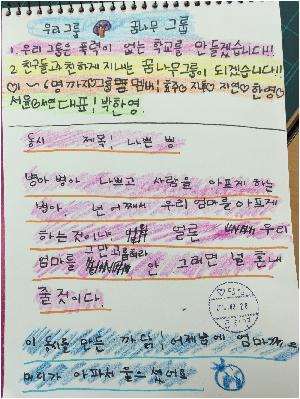 우리그룹 꿈나무 그룹
1. 우리 그룹은 폭력이 없는 학교를 만들겠습니다!!
2. 친구들과 친하게 지내는 꿈나무그룹이 되겠습니다!!
그룹 멤버! 효주♡지후♡지연♡한영♡
서윤♡ 대표! 박한영.
동시 제목! 나쁜 삥
병아 병아 나쁘고 사람을 아프게 하는
병아. 넌 어째서 우리 엄마를 아프게
하는 것이냐 얼른 우리
엄마를 그만 괴롭혀라 안 그러면 널 혼내
줄것이다.
이 동시를 만든 까닭! 어제밤에 엄마가
머리가 아파서 울으셨어요